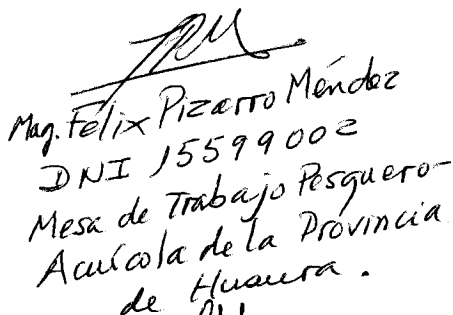 Mag. Félix Pizarro Méndez
DNI 15599002
Mesa de Trabajo Pesquero-
Acuícola de la Provincia
de Huaura.